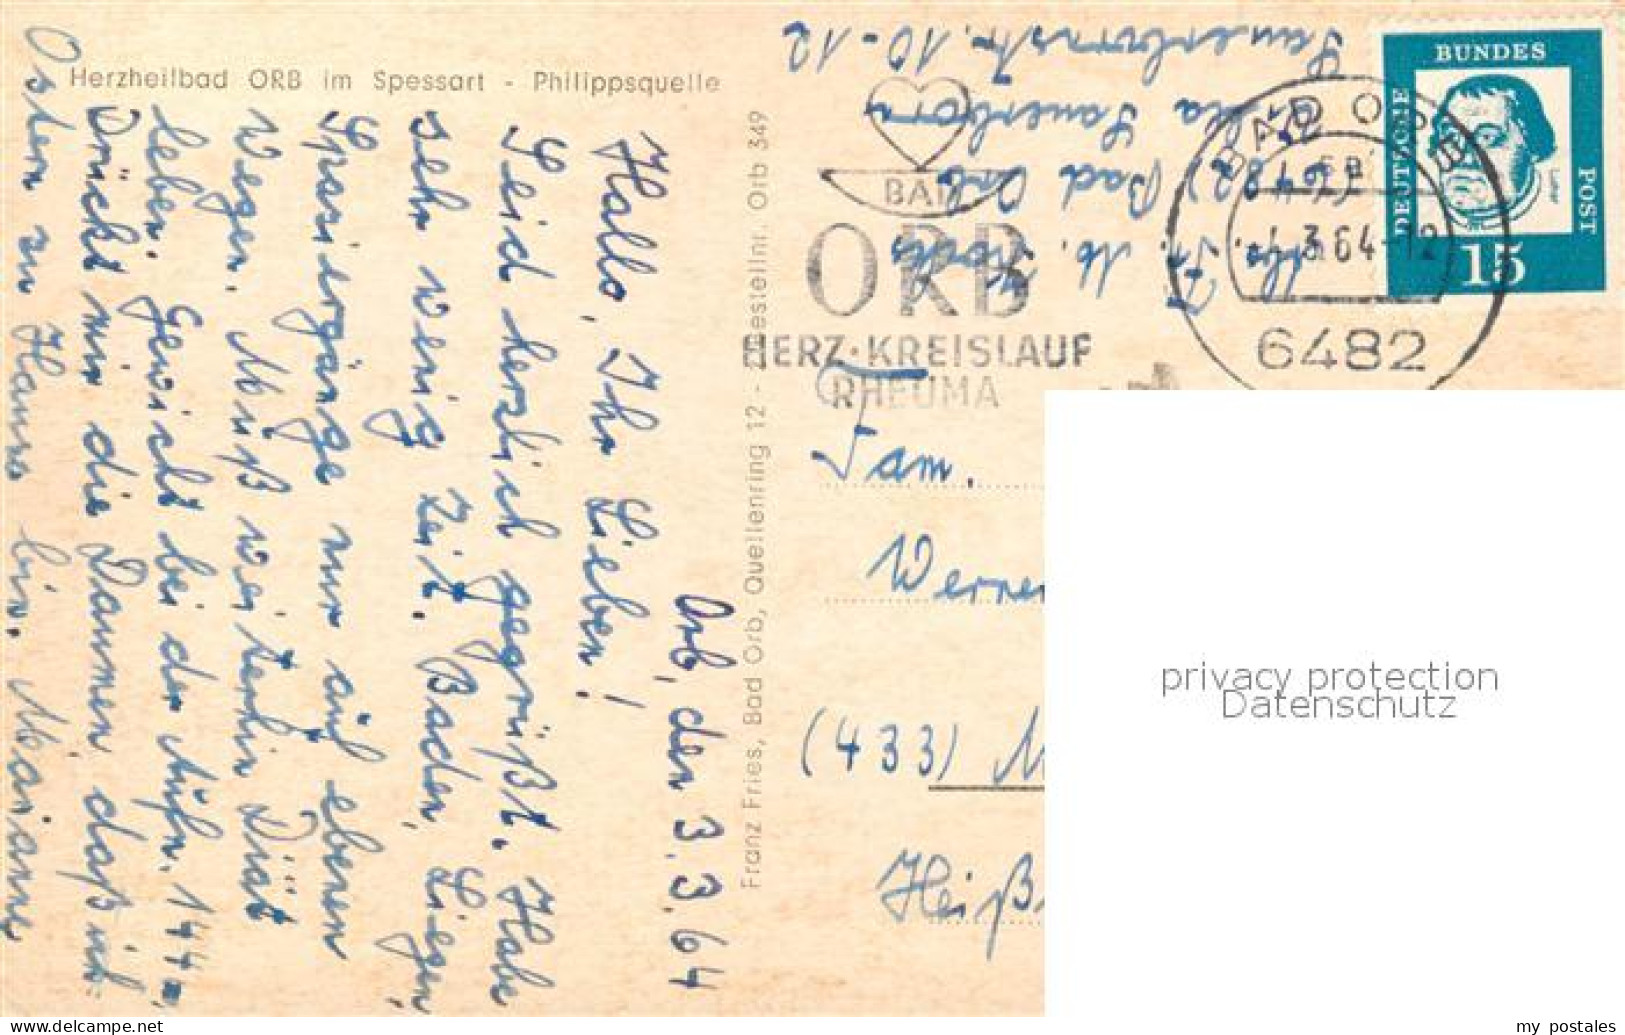 Herzheilbad ORB im Spessart - Philippsquelle
Orb, den 3.3.64
Hallo, Ihr Lieben!
Seid herzlich gegrüßt. Habe
sehr wenig Zeit. Baden, Liegen,
Spaziergänge nur auf ebenen
Wegen. Muß weiterhin Diät
leben. Gewicht bei der Aufn. 144
Drückt mir die Daumen, daß ich
Ostern zu Hause bin. Marianne
Franz Fries, Bad Orb, Quellenring 12 - Bestellnr. Orb 349
Abs. M.
(6482) Bad Orb
Villa Sauerborn
Sauerbornstr. 10-12
BAD
ORB
HERZ·KREISLAUF
RHEUMA
BAD ORB
3.64-12
6482
BUNDES
DEUTSCHE
POST
15
Fam.
Werner
(433) M
Heiß
privacy protection
Datenschutz
www.delcampe.net
my_postales